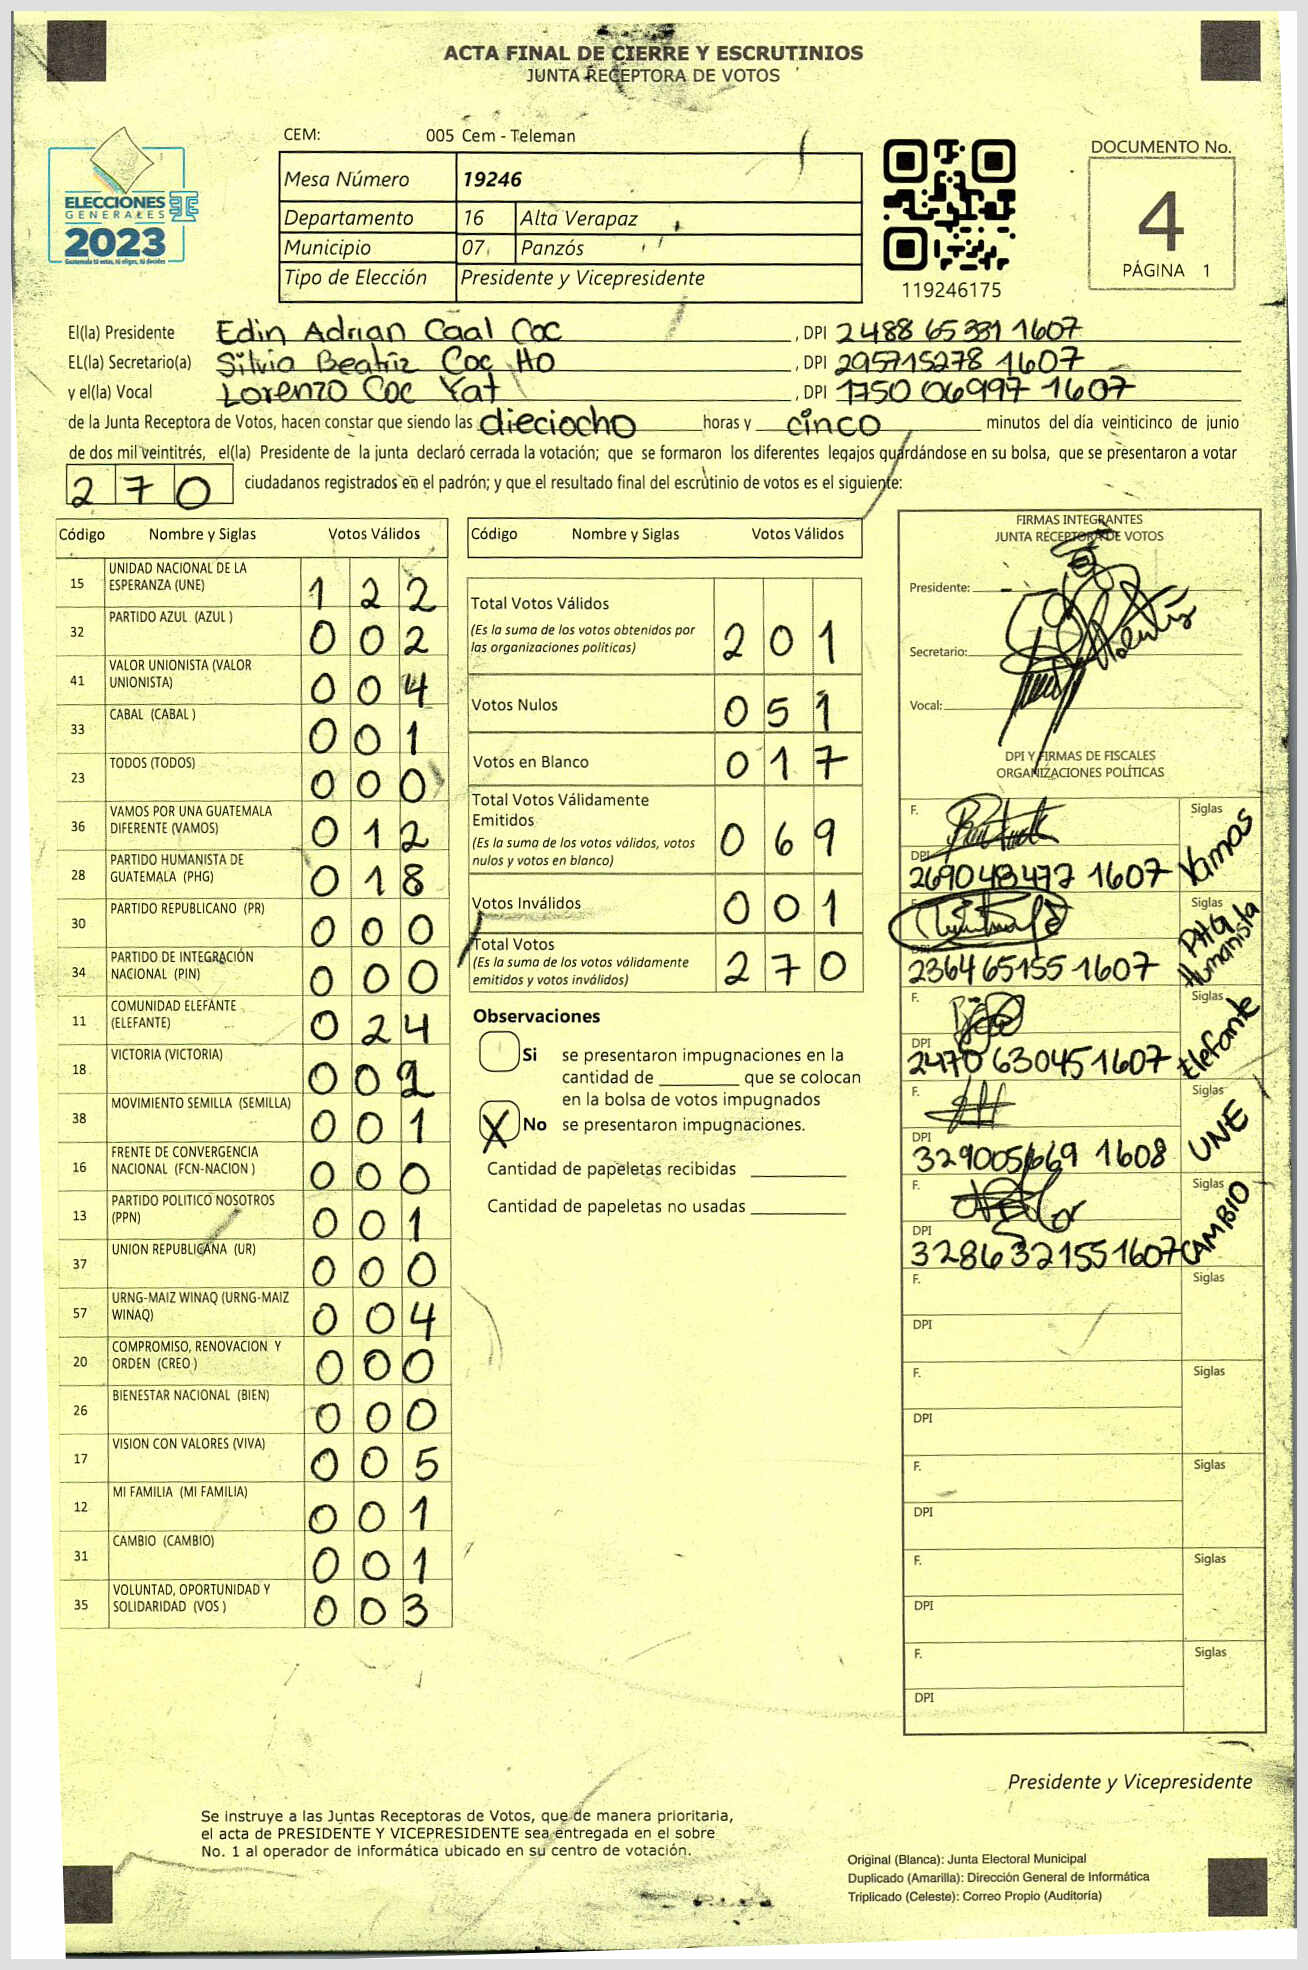 ACTA FINAL DE CIERRE Y ESCRUTINIOS
JUNTA RECEPTORA DE VOTOS
CEM: 005 Cem - Teleman
ELECCIONES
GENERALES
2023
Guatemala tú votas, tú eliges, tú decides
Mesa Número 19246
Departamento 16 Alta Verapaz
Municipio 07 Panzós
Tipo de Elección Presidente y Vicepresidente
119246175
DOCUMENTO No.
4
PÁGINA 1
El(la) Presidente Edin Adrian Caal Coc , DPI 2488 65331 1607
EL(la) Secretario(a) Silvia Beatriz Coc Ho , DPI 295715278 1607
y el(la) Vocal Lorenzo Coc Yat , DPI 1750 06997 1607
de la Junta Receptora de Votos, hacen constar que siendo las dieciocho horas y cinco minutos del día veinticinco de junio
de dos mil veintitrés, el(la) Presidente de la junta declaró cerrada la votación; que se formaron los diferentes legajos guardándose en su bolsa, que se presentaron a votar
270 ciudadanos registrados en el padrón; y que el resultado final del escrutinio de votos es el siguiente:
Código Nombre y Siglas Votos Válidos
15 UNIDAD NACIONAL DE LA ESPERANZA (UNE) 1 2 2
32 PARTIDO AZUL (AZUL ) 0 0 2
41 VALOR UNIONISTA (VALOR UNIONISTA) 0 0 4
33 CABAL (CABAL ) 0 0 1
23 TODOS (TODOS) 0 0 0
36 VAMOS POR UNA GUATEMALA DIFERENTE (VAMOS) 0 1 2
28 PARTIDO HUMANISTA DE GUATEMALA (PHG) 0 1 8
30 PARTIDO REPUBLICANO (PR) 0 0 0
34 PARTIDO DE INTEGRACIÓN NACIONAL (PIN) 0 0 0
11 COMUNIDAD ELEFANTE (ELEFANTE) 0 2 4
18 VICTORIA (VICTORIA) 0 0 2
38 MOVIMIENTO SEMILLA (SEMILLA) 0 0 1
16 FRENTE DE CONVERGENCIA NACIONAL (FCN-NACION ) 0 0 0
13 PARTIDO POLITICO NOSOTROS (PPN) 0 0 1
37 UNION REPUBLICANA (UR) 0 0 0
57 URNG-MAIZ WINAQ (URNG-MAIZ WINAQ) 0 0 4
20 COMPROMISO, RENOVACION Y ORDEN (CREO ) 0 0 0
26 BIENESTAR NACIONAL (BIEN) 0 0 0
17 VISION CON VALORES (VIVA) 0 0 5
12 MI FAMILIA (MI FAMILIA) 0 0 1
31 CAMBIO (CAMBIO) 0 0 1
35 VOLUNTAD, OPORTUNIDAD Y SOLIDARIDAD (VOS ) 0 0 3
Código Nombre y Siglas Votos Válidos
Total Votos Válidos
(Es la suma de los votos obtenidos por
las organizaciones políticas) 2 0 1
Votos Nulos 0 5 1
Votos en Blanco 0 1 7
Total Votos Válidamente
Emitidos
(Es la suma de los votos válidos, votos
nulos y votos en blanco) 0 6 9
Votos Inválidos 0 0 1
Total Votos
(Es la suma de los votos válidamente
emitidos y votos inválidos) 2 7 0
Observaciones
Si se presentaron impugnaciones en la
cantidad de ________ que se colocan
en la bolsa de votos impugnados
X No se presentaron impugnaciones.
Cantidad de papeletas recibidas
Cantidad de papeletas no usadas
FIRMAS INTEGRANTES
JUNTA RECEPTORA DE VOTOS
Presidente:
Secretario:
Vocal:
DPI Y FIRMAS DE FISCALES
ORGANIZACIONES POLÍTICAS
F. Siglas Vamos
DPI 269048472 1607
F. Siglas PHG Humanista
DPI 2364 65155 1607
F. Siglas Elefante
DPI 2470 63045 1607
F. Siglas UNE
DPI 329005669 1608
F. Siglas CAMBIO
DPI 3286321551607
F. Siglas
DPI
F. Siglas
DPI
F. Siglas
DPI
F. Siglas
DPI
F. Siglas
DPI
Presidente y Vicepresidente
Se instruye a las Juntas Receptoras de Votos, que de manera prioritaria,
el acta de PRESIDENTE Y VICEPRESIDENTE sea entregada en el sobre
No. 1 al operador de informática ubicado en su centro de votación.
Original (Blanca): Junta Electoral Municipal
Duplicado (Amarilla): Dirección General de Informática
Triplicado (Celeste): Correo Propio (Auditoría)